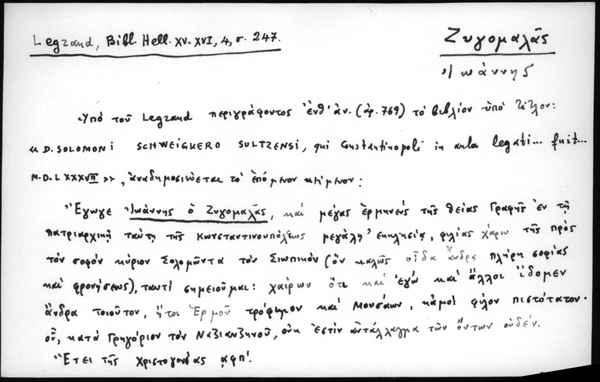 Legrand, Bibl. Hell. XV-XVI, 4, σ. 247.
Ζυγομαλᾶς
Ἰωάννης
Ὑπὸ τοῦ Legrand περιγράφοντος ἐνθ' ἀν. (ἀρ. 769) τὸ βιβλίον ὑπὸ τίτλον:
« D. SOLOMONI SCHWEIGKERO SULTZENSI, qui Constantinopoli in aula legati... fuit...
M.D.LXXXVII », ἀναδημοσιεύεται τὸ ἑπόμενον κείμενον:
"Ἔγωγε Ἰωάννης ὁ Ζυγομαλᾶς, καὶ μέγας ἑρμηνεὺς τῆς θείας Γραφῆς ἐν τῇ
πατριαρχικῇ ταύτῃ τῆς Κωνσταντινουπόλεως μεγάλῃ ἐκκλησίᾳ, φιλίας χάριν τῆς πρὸς
τὸν σοφὸν κύριον Σολομῶντα τὸν Σιωπικὸν (ὃν καλῶς οἶδα ἄνδρα πλήρη σοφίας
καὶ φρονήσεως), ταυτὶ σημειοῦμαι: χαίρων ὅτι καὶ ἐγὼ καὶ ἄλλοι ἴδομεν
ἄνδρα τοιοῦτον, ἤτοι Ἑρμοῦ τρόφιμον καὶ Μουσάων, κἀμοὶ φίλον πιστότατον.
οὗ, κατὰ Γρηγόριον τὸν Ναζιανζηνοῦ, οὐκ ἐστὶν ἀντάλλαγμα τῶν ὄντων οὐδέν.
Ἔτει τῆς χριστογονίας αφπ'.